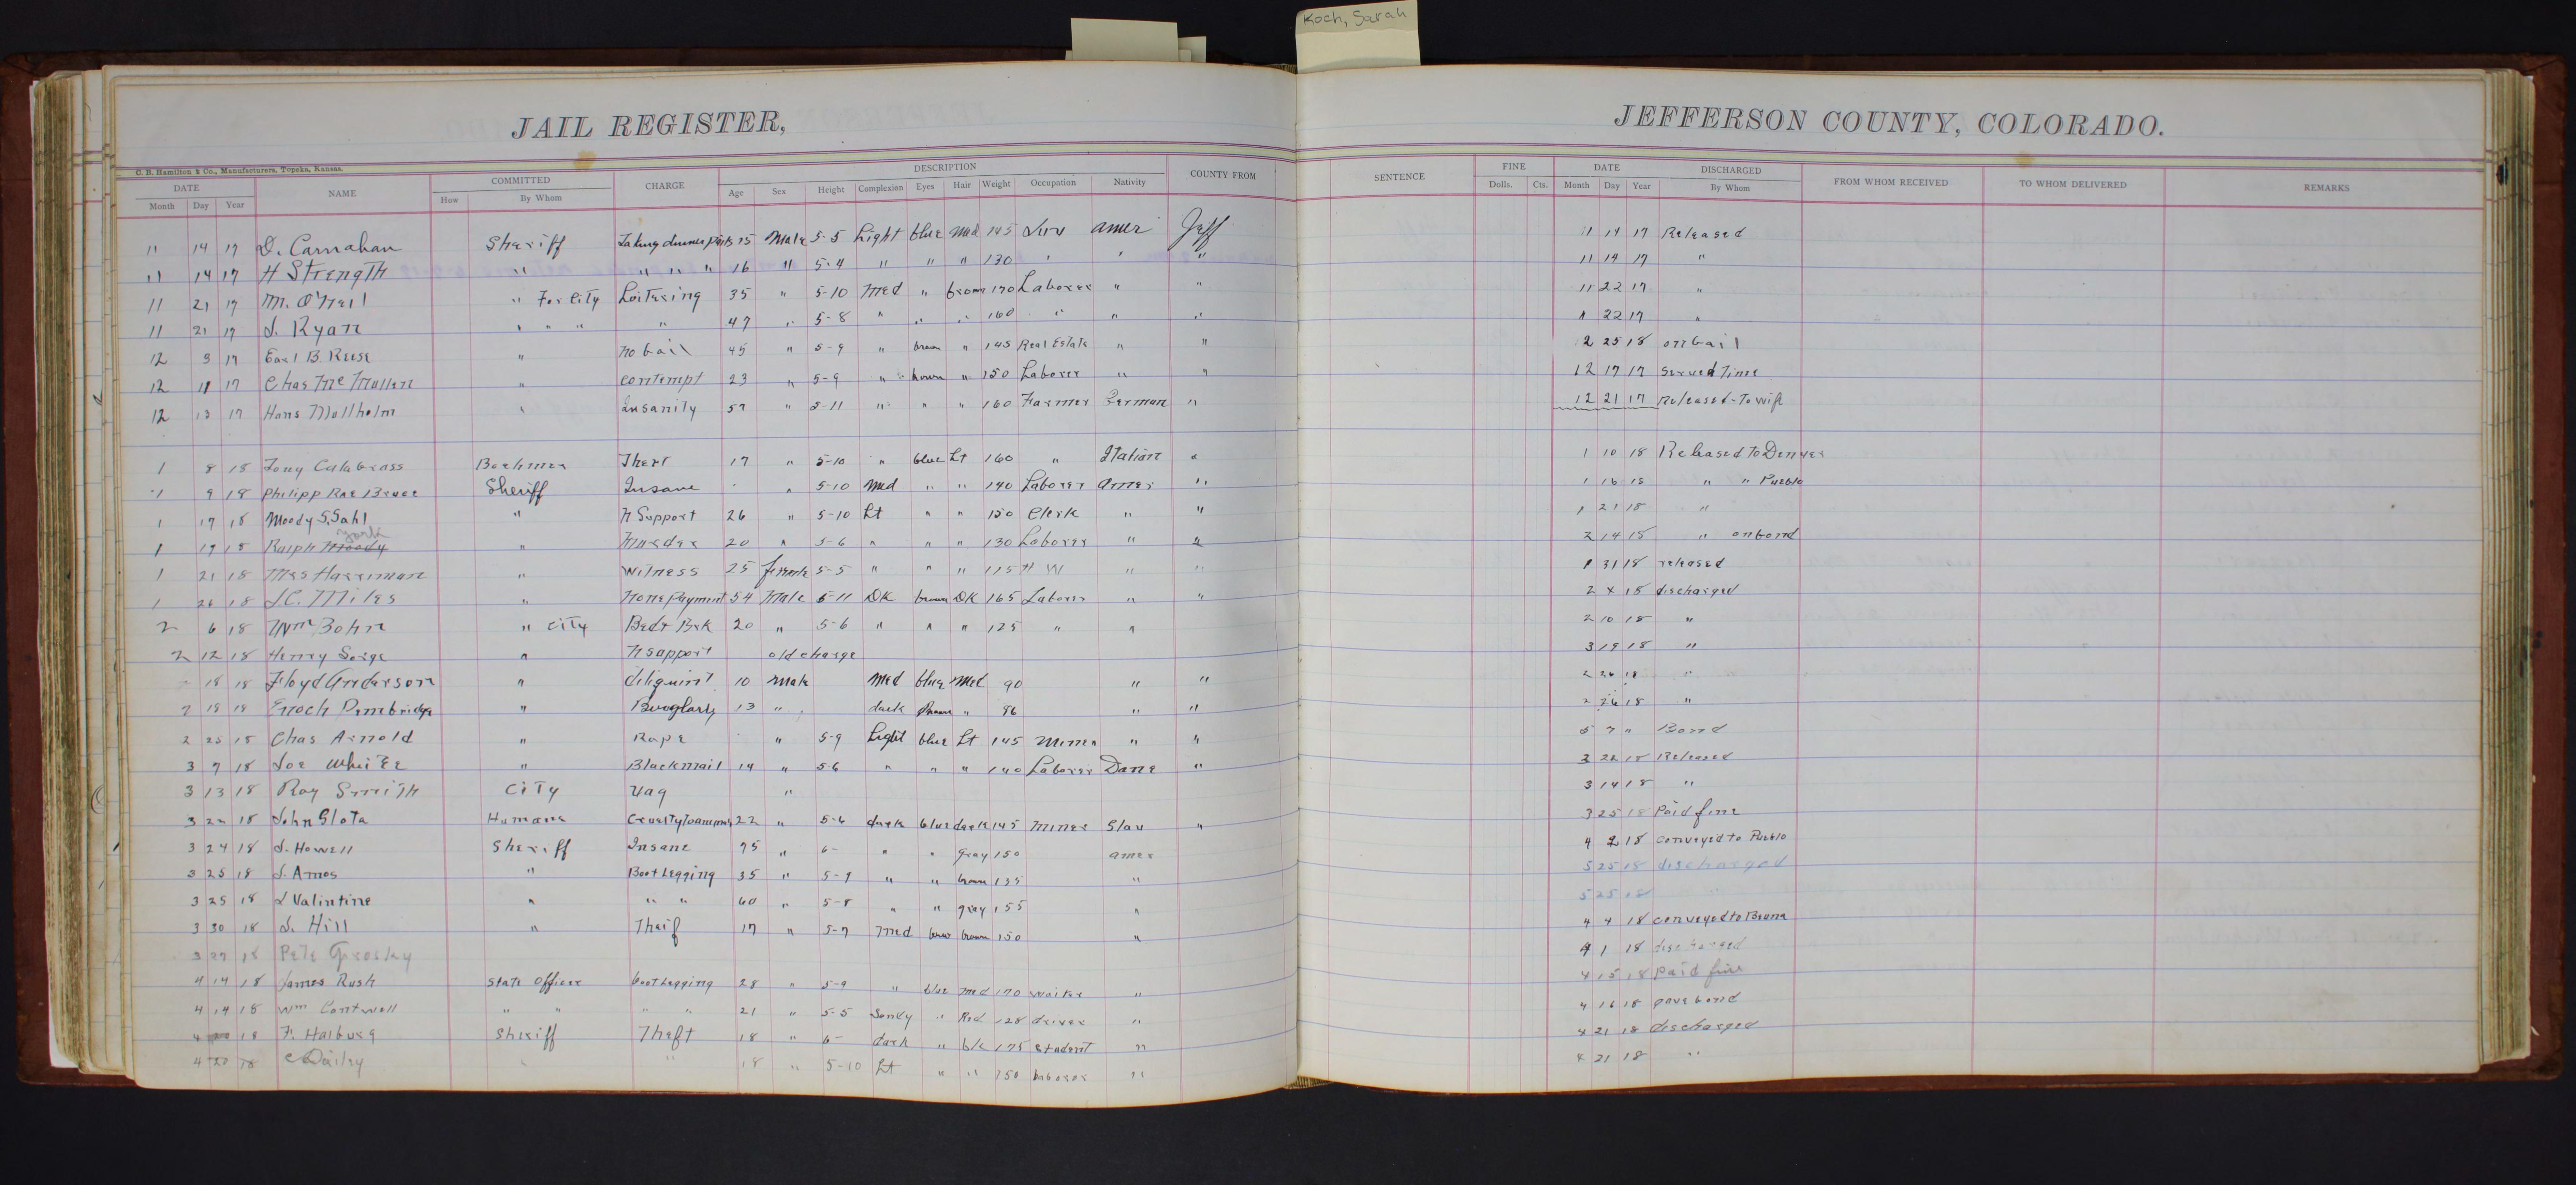 Koch, Sarah
JAIL REGISTER,
JEFFERSON COUNTY, COLORADO.
C. B. Hamilton & Co., Manufacturers, Topeka, Kansas.
DATE NAME COMMITTED CHARGE DESCRIPTION COUNTY FROM SENTENCE FINE DATE DISCHARGED FROM WHOM RECEIVED TO WHOM DELIVERED REMARKS
Month Day Year How By Whom Age Sex Height Complexion Eyes Hair Weight Occupation Nativity Dolls. Cts. Month Day Year By Whom
11 14 17 D. Carnahan Sheriff Taking dinner 15 Male 5-5 Light blue Med 145 amer Jeff 11 14 17 Released
11 14 17 H Strength " " " " 16 " 5-4 " " " 130 " " " 11 14 17 "
11 21 17 M. O'Neil " For City Loitering 35 " 5-10 Med " brown 170 Laborer " " 11 22 17 "
11 21 17 J. Ryan " " " " 47 " 5-8 " " " 160 " " " 11 22 17 "
12 3 17 Earl B. Reese " no bail 45 " 5-9 " brown " 145 Real Estate " " 2 25 18 on bail
12 11 17 Chas McMullen " contempt 23 " 5-9 " brown " 150 Laborer " " 12 17 17 Served Time
12 13 17 Hans Mollholm " Insanity 57 " 5-11 " " " 160 Farmer German " 12 21 17 Released-To wife
1 8 18 Tony Calabrass Boehmer Theft 17 " 5-10 " blue Lt 160 " Italian " 1 10 18 Released To Denver
1 9 18 Philipp Rae Bruce Sheriff Insane " 5-10 Med " " 140 Laborer Amer " 1 16 18 " " Pueblo
1 17 18 Moody S. Sahl " N Support 26 " 5-10 Lt " " 150 Clerk " " 1 21 18 "
1 19 18 Ralph Moody York " Murder 20 " 5-6 " " " 130 Laborer " " 2 14 18 " on bond
1 21 18 Mrs Harriman " Witness 25 female 5-5 " " " 115 H W " " 1 31 18 released
1 26 18 J.C. Miles " None payment 54 Male 5-11 DK brown DK 165 Laborer " " 2 4 18 discharged
2 6 18 Wm Bohn " City 20 " 5-6 " " " 125 " " 2 10 18 "
2 12 18 Henry Sorge " N support old charge 3 19 18 "
18 18 Floyd Anderson " diliquint 10 Male Med blue Med 90 " " 2 26 18 "
2 18 18 Enoch Pembridge " Burglary 13 " dark Brown " 86 " " 2 26 18 "
2 25 18 Chas Arnold " Rape " 5-9 Light blue Lt 145 Miner " " 5 7 " Bond
3 7 18 Joe White " Blackmail 14 " 5-6 " " " 140 Laborer Dane " 3 22 18 Released
3 13 18 Roy Smith City Vag " 3 14 18 "
3 22 18 John Slota Humane Cruelty to animals 22 " 5-6 dark blue dark 145 miner Slav " 3 25 18 Paid fine
3 24 18 J. Howell Sheriff Insane 75 " 6- " " gray 150 amer 4 2 18 conveyed to Pueblo
3 25 18 J. Amos " Boot Legging 35 " 5-9 " " brown 135 " 5 25 18 discharged
3 25 18 J Valintine " " " 60 " 5-8 " " gray 155 " 5 25 18 "
3 30 18 J. Hill " Theif 17 " 5-7 Med brown 150 " 4 4 18 conveyed to
3 27 18 Pete Grosky 4 1 18 discharged
4 14 18 James Rush State Officer boot legging 28 " 5-9 " blue med 170 waiter " 4 15 18 paid fine
4 14 18 Wm Contwell " " " " 21 " 5-5 Sandy " Red 128 driver " 4 16 18 gave bond
4 20 18 F. Halburg Sheriff Theft 18 " 6- dark " blk 175 student " 4 21 18 discharged
4 20 18 C Dailey " " 18 " 5-10 Lt " " 150 laborer " 4 21 18 "